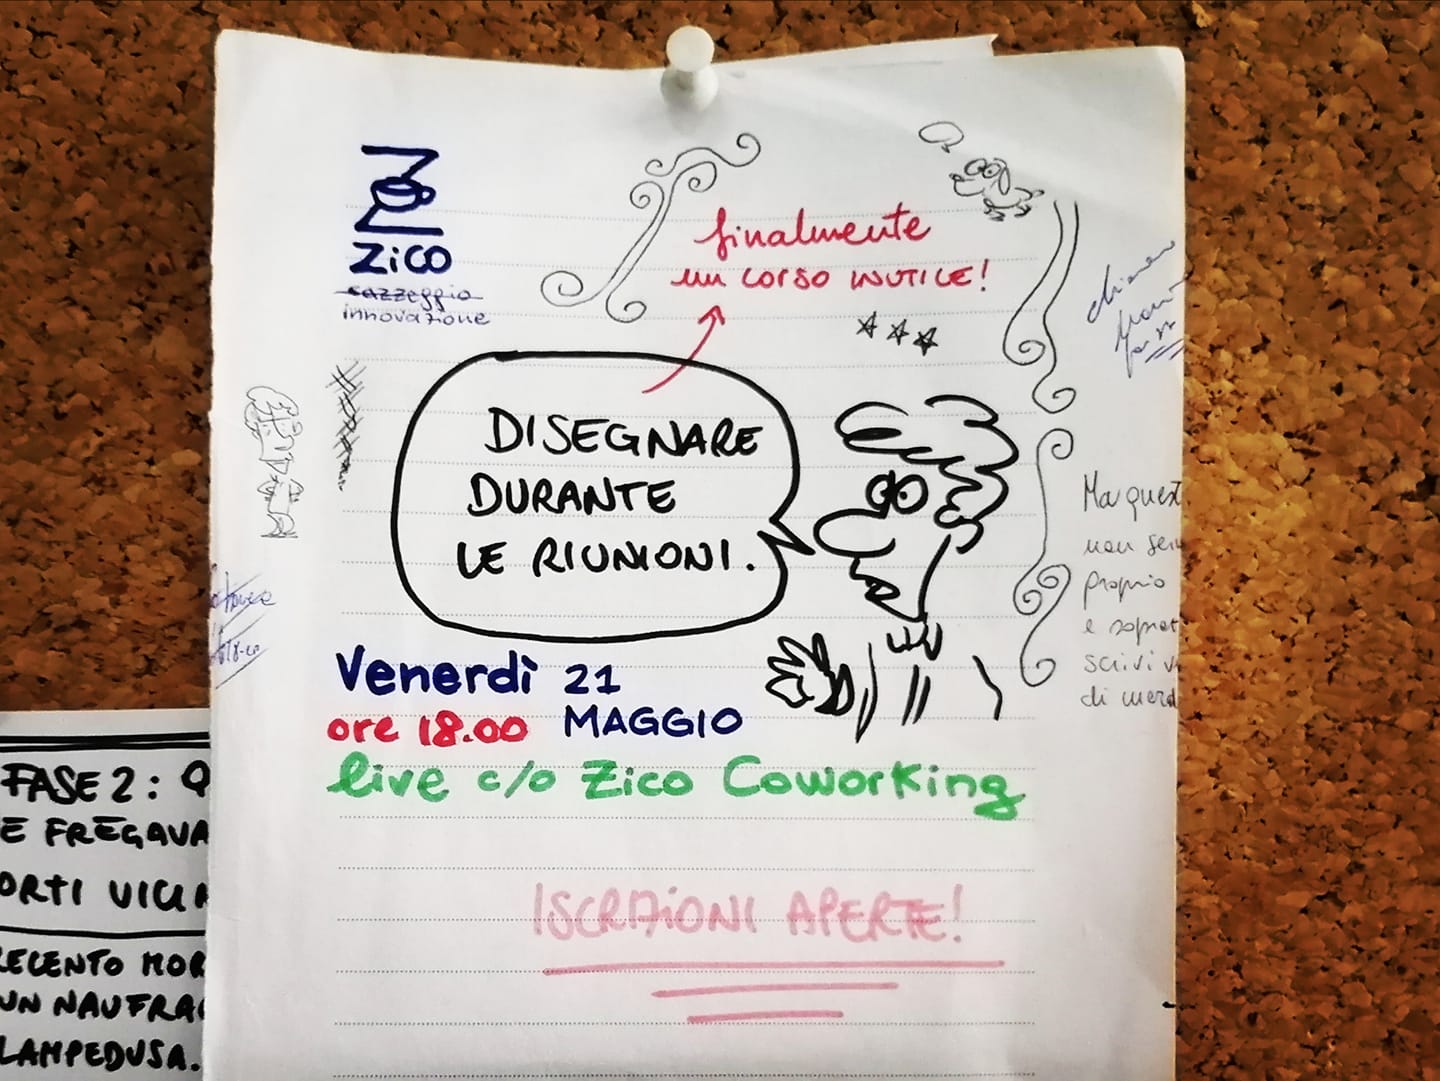 ZiCO
cazzeggio
innovazione
finalmente
un corso inutile!
DISEGNARE
DURANTE
LE RIUNIONI.
Venerdì 21
ore 18.00 MAGGIO
live c/o Zico Coworking
ISCRIZIONI APERTE!
Ma quest
non
proprio
e soprat
scrivi
di merd
FASE 2:
E FREGAVA
ORTI VICI
RECENTO MOR
UN NAUFRAG
LAMPEDUSA.